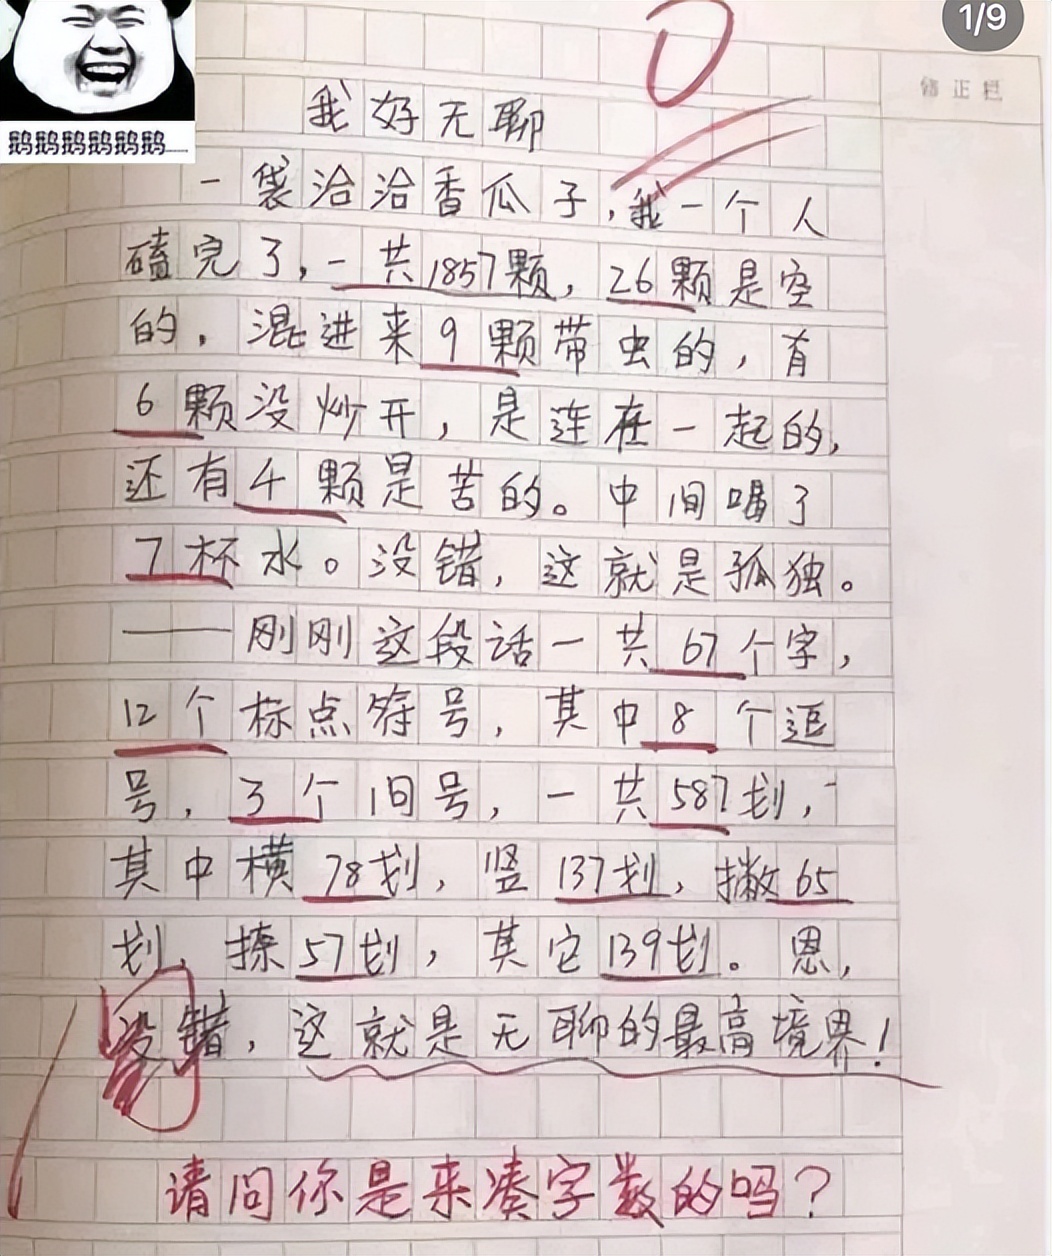 1/9
修正栏
鹅鹅鹅鹅鹅鹅
我好无聊
一袋洽洽香瓜子,我一个人
磕完了,一共1857颗,26颗是空
的,混进来9颗带虫的,有
6颗没炒开,是连在一起的,
还有4颗是苦的。中间喝了
7杯水。没错,这就是孤独。
——刚刚这段话一共67个字,
12个标点符号,其中8个逗
号,3个间号,一共587划,
其中横78划,竖137划,撇65
划,捺57划,其它139划。恩,
没错,这就是无聊的最高境界!
请问你是来凑字数的吗?